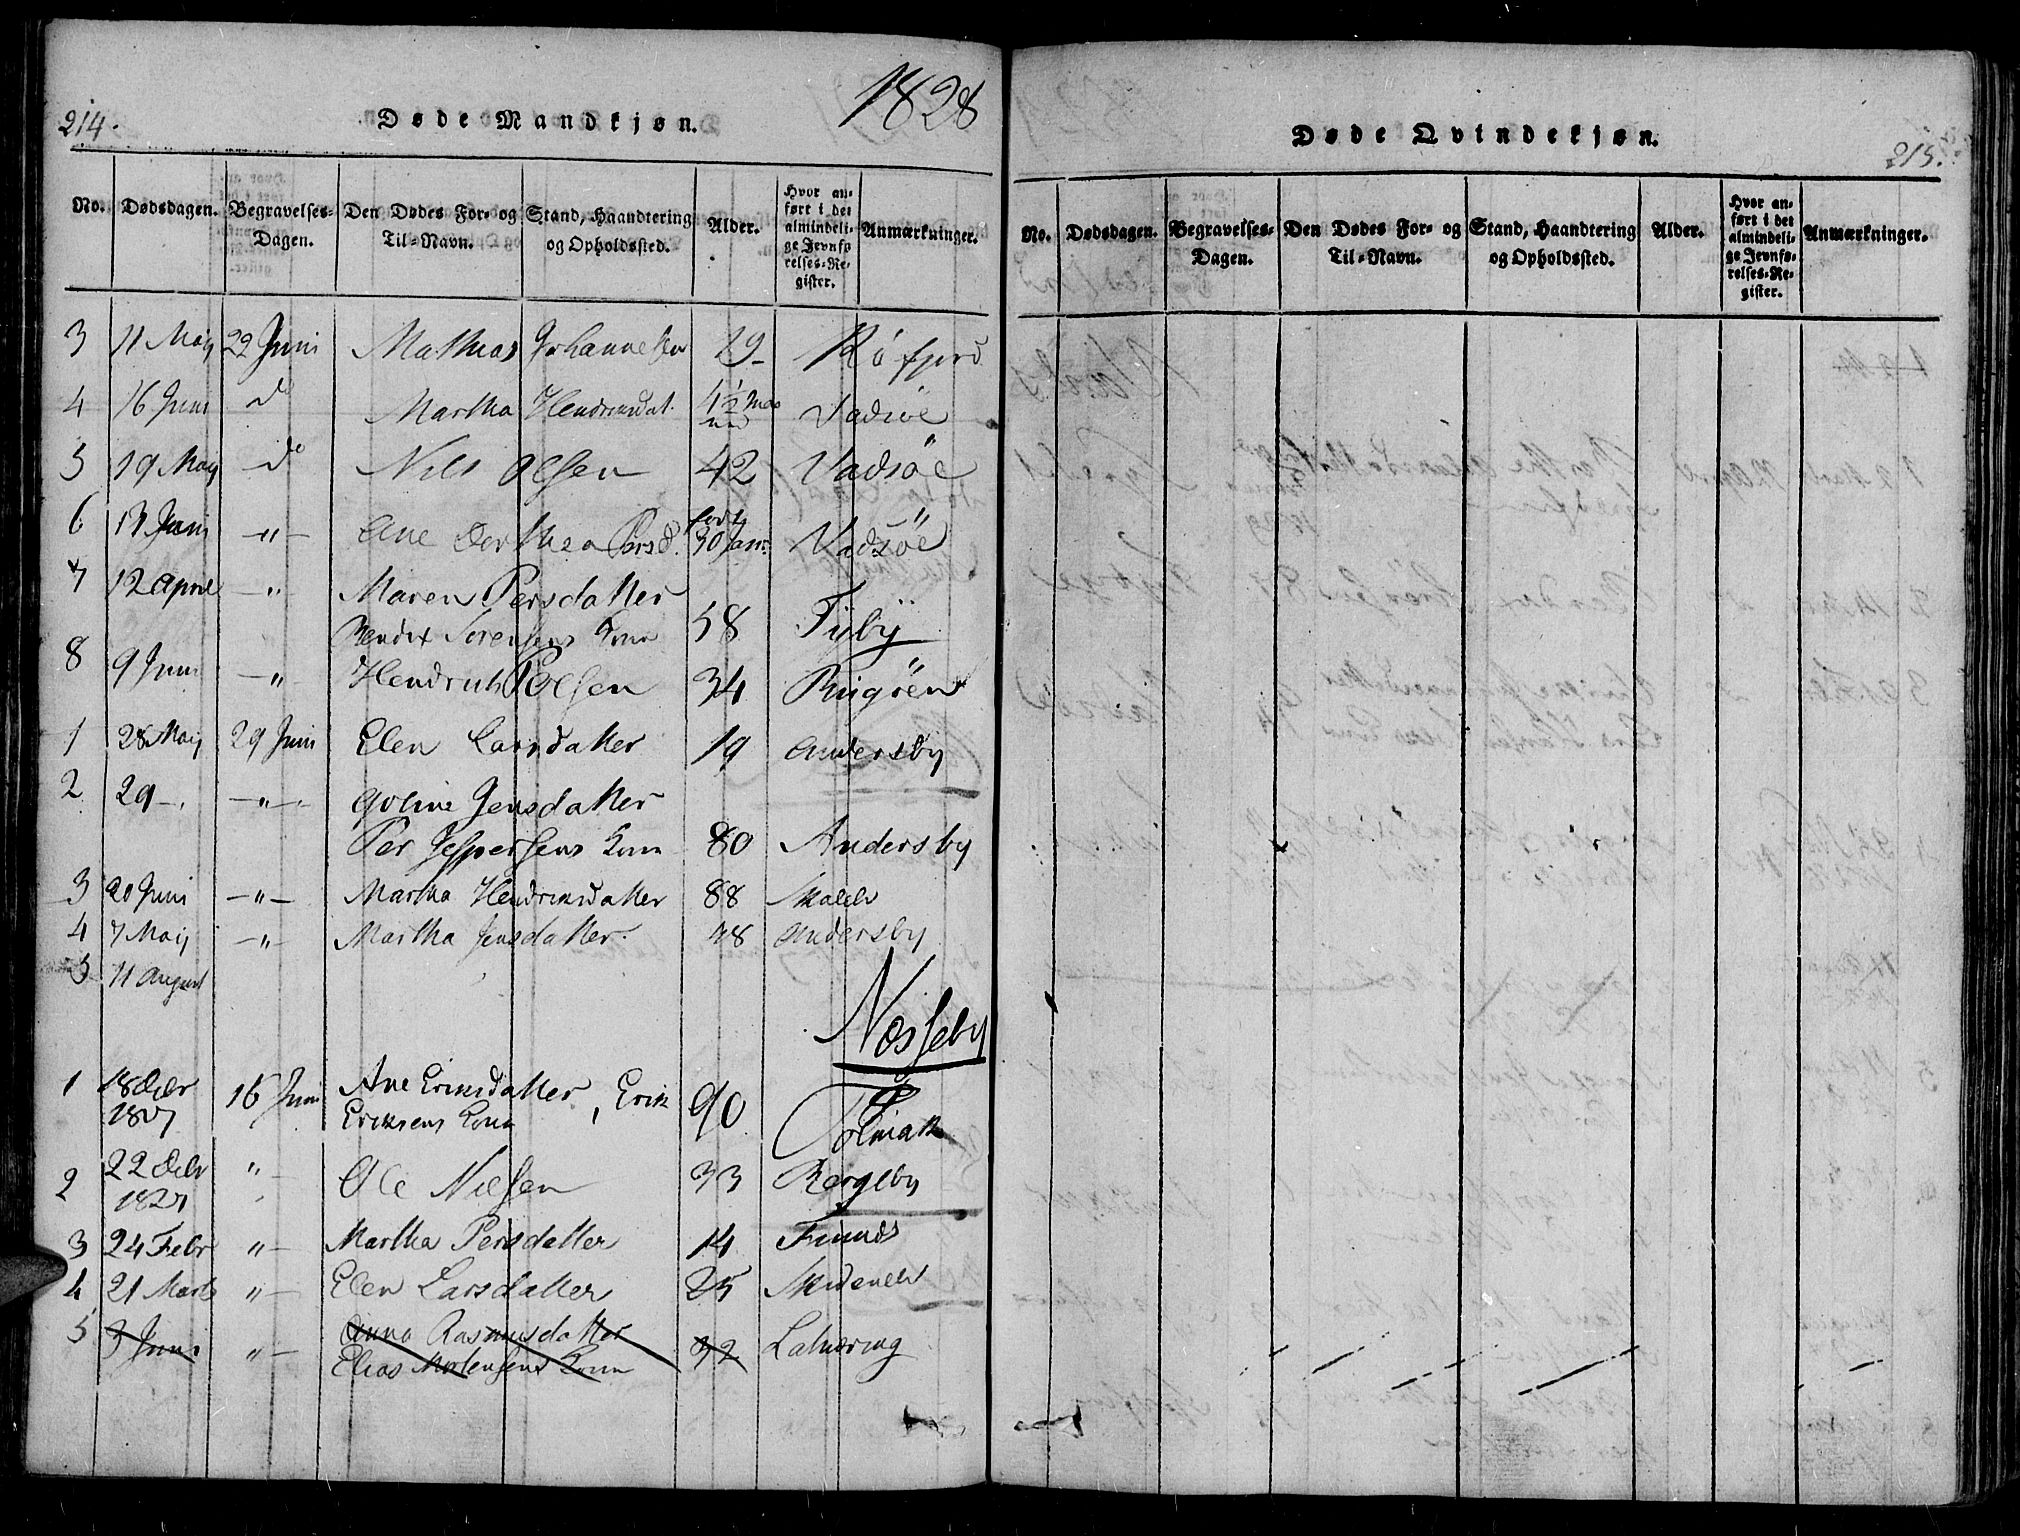 214.
Døde Mandkjøn.
1828
No.
Dødsdagen.
Begravelses-Dagen.
Den Dødes For- og Til-Navn.
Stand, Haandtering og Opholdssted.
Alder.
Hvor anført i det almindelige Jevnførelses-Register.
Anmærkninger.
3 11 Maij 22 Juni Mathias Johannesen 19 -
4 16 Juni do Martha Hendriksdat. 4 1/2 Vadsöe
5 19 Maij do Nils Olsen 42 Vadsöe
6 13 Juni -"- Ane Dorthea Persd. 30 Janr. Vadsöe
7 12 April -"- Maren Persdatter
Bendix Sørensens Kone 58
8 9 Juni -"- Hendrich Polsen 34
1 28 Maij 29 Juni Elen Larsdatter 19 Andersby
2 29 -. -"- Jensdatter
Per Jespersens Kone 80 Andersby
3 20 Juni -"- Martha Hendriksdatter 88
4 7 Maij -"- Martha Jensdatter. 48 Andersby
5 11 August
Næsseby
1 18 Debr 1827 16 Juni Ane Eriksdatter, Erik
Eriksens Kone 90
2 22 Debr 1827 "- Ole Nielsen 33 Bergeby
3 24 Febr "- Martha Persdatter 14
4 21 Marts "- Elen Larsdatter 25
5 3 Juni "- Anna Rasmusdatter
Elias Mortensens Kone 32
Døde Qvindekjøn.
215.
No.
Dødsdagen.
Begravelses-Dagen.
Den Dødes For- og Til-Navn.
Stand, Haandtering og Opholdssted.
Alder.
Hvor anført i det almindelige Jevnførelses-Register.
Anmærkninger.